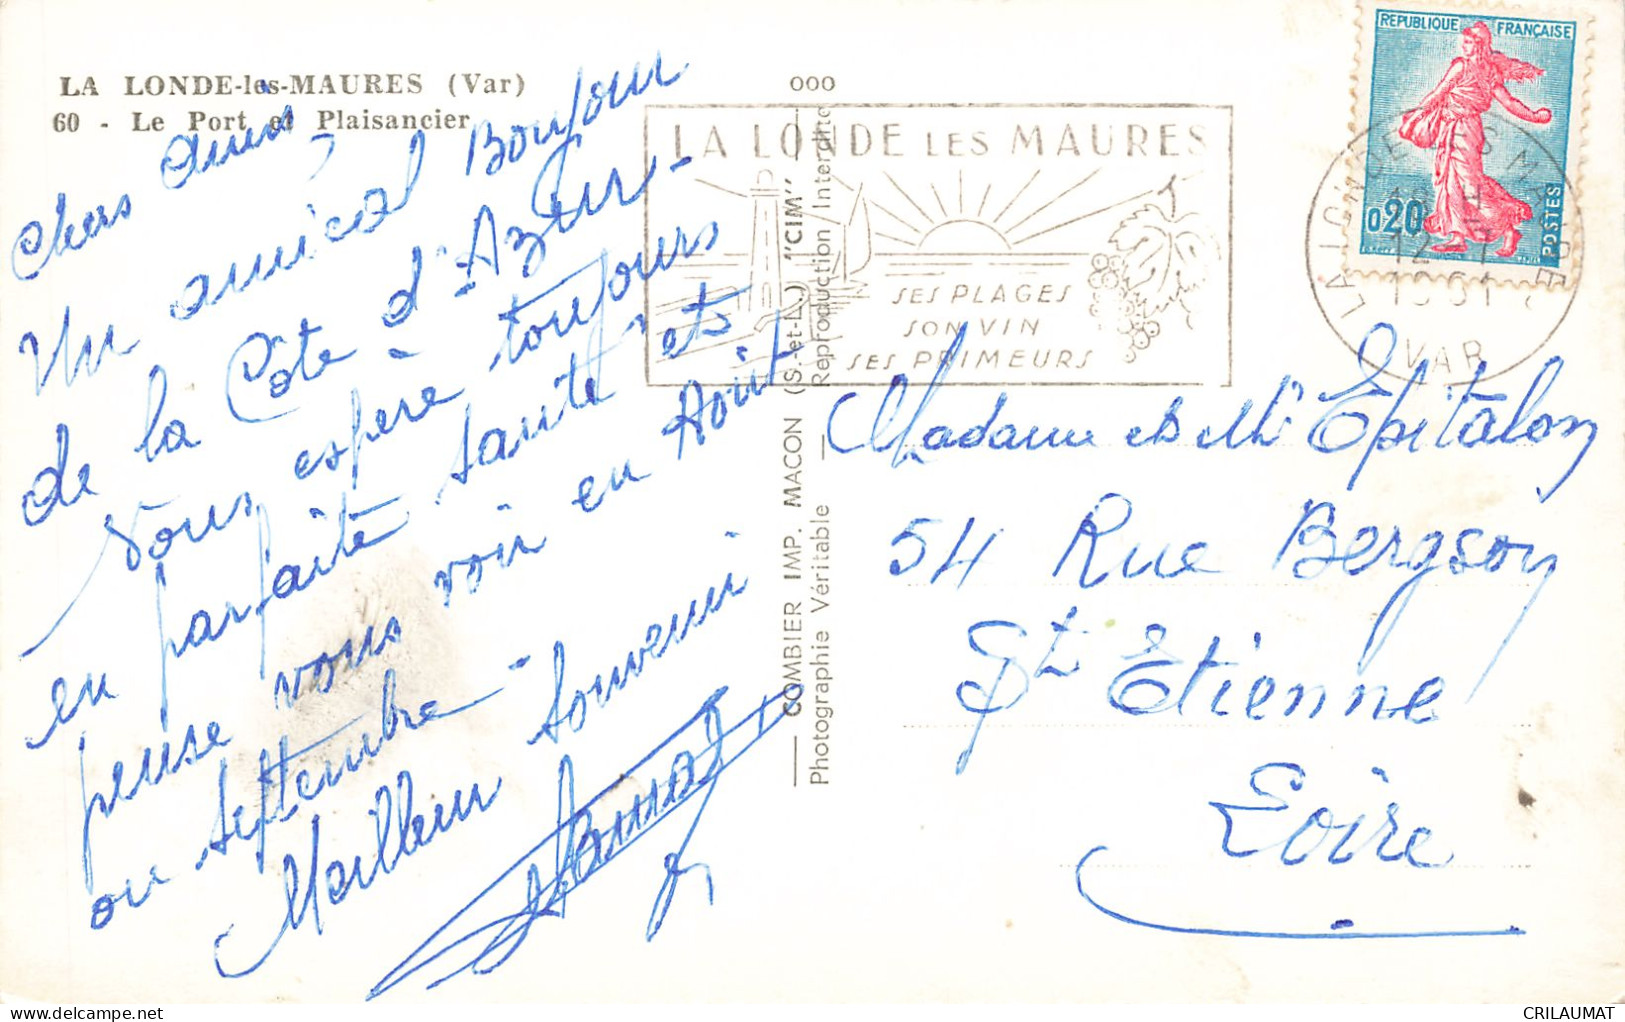 LA LONDE-les-MAURES (Var)
60 - Le Port et Plaisancier
Chers amis,
Un amical Bonjour
de la Côte d'Azur -
Vous espère toujours
en parfaite santé et
pense vous voir en Août
ou septembre -
Meilleur souvenir
ooo
COMBIER IMP. MACON (S.-et-L.) "CIM"
Photographie Véritable — Reproduction Interdite
LA LONDE LES MAURES
SES PLAGES
SON VIN
SES PRIMEURS
REPUBLIQUE FRANÇAISE
0,20
POSTES
LA LONDE LES MAURES
12-7
1961
VAR
Madame et Mr Epitalon
54 Rue Bergson
St Etienne
Loire
CRILAUMAT